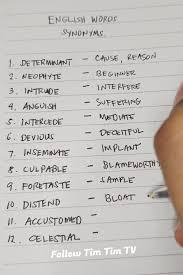 ENGLISH WORDS
SYNONYMS
1. DETERMINANT - CAUSE, REASON
2. NEOPHYTE - BEGINNER
3. INTRUDE - INTERFERE
4. ANGUISH - SUFFERING
5. INTERCEDE - MEDIATE
6. DEVIOUS - DECEITFUL
7. INSEMINATE - IMPLANT
8. CULPABLE - BLAMEWORTHY
9. FORETASTE - SAMPLE
10. DISTEND - BLOAT
11. ACCUSTOMED -
12. CELESTIAL -
Follow Tim Tim TV